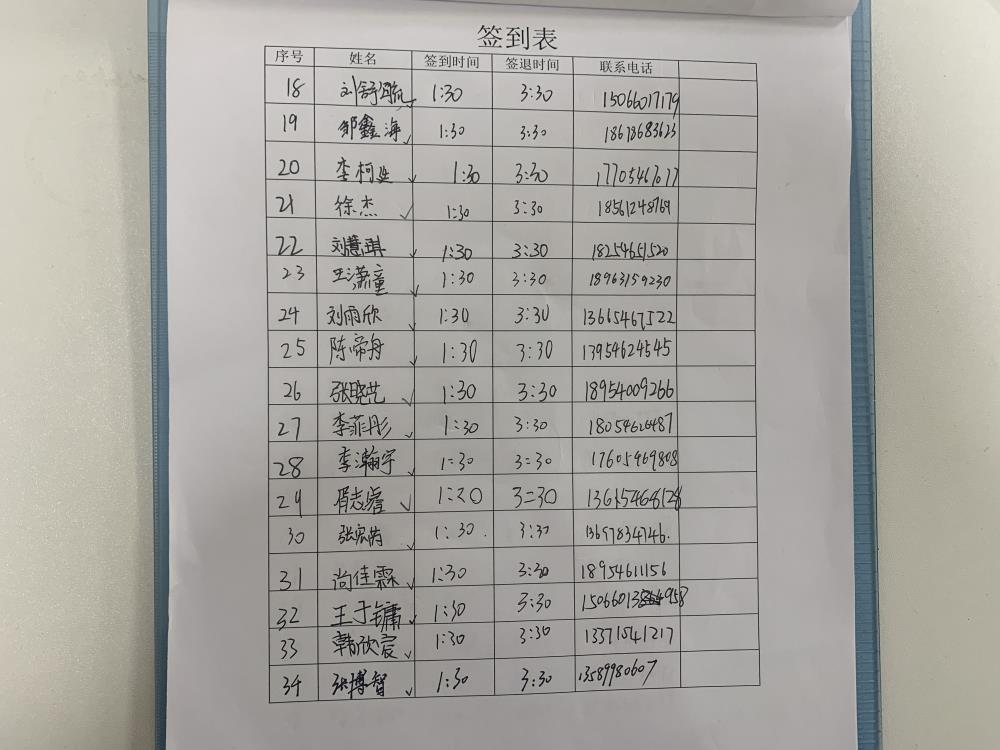 签到表
序号 姓名 签到时间 签退时间 联系电话
18 刘舒 1:30 3:30 15066017179
19 邹鑫海 1:30 3:30 18678683623
20 李柯 1:30 3:30 17705467077
21 徐杰 1:30 3:30 18561248769
22 刘慧琪 1:30 3:30 18254651520
23 王潇童 1:30 3:30 18963159230
24 刘雨欣 1:30 3:30 13665467522
25 陈帝舟 1:30 3:30 13954624545
26 张晓艺 1:30 3:30 18954009266
27 李菲彤 1:30 3:30
28 李瀚宇 1:30 3:30 17605469808
29 胥志睿 1:30 3:30
30 张宏 1:30 3:30 13697834746.
31 尚佳霖 1:30 3:30 18954611156
32 王于镛 1:30 3:30
33 韩欣宸 1:30 3:30 13371541217
34 张博智 1:30 3:30 13589980607